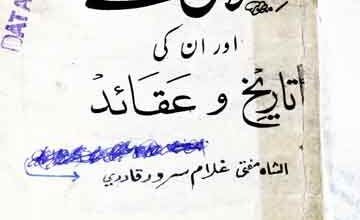 DATA
اور ان کی
تاریخ و عقائد
الشاہ مفتی غلام سرور قادری